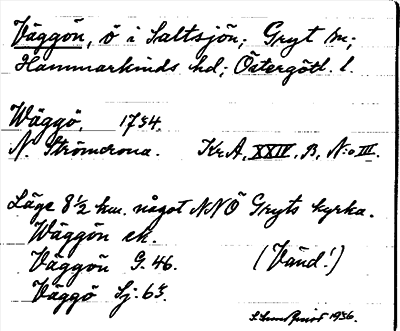 Väggön, ö i Saltsjön; Gryt sn;
Hammarkinds hd; Östergötl. l.
Wäggö. 1734.
N. Strömcrona. Kr.A. XXIV. B, N:o III.
Läge 8 1/2 km. något NNÖ Gryts kyrka.
Wäggön ek.
Väggön G. 46. (Vänd!)
Väggö Sj. 63.
1936.